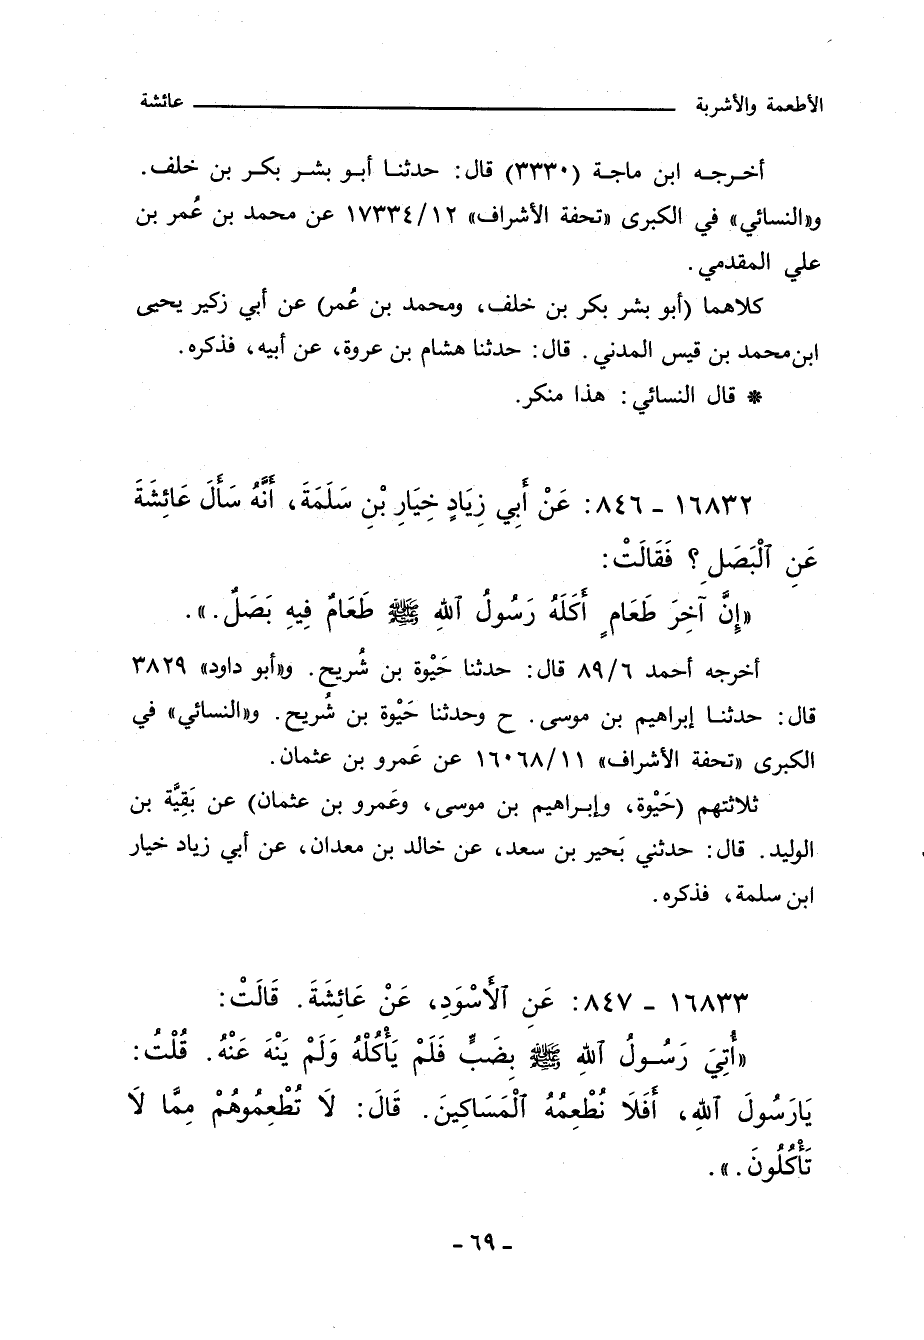 الأطعمة والأشربة ــــــــــــــــــــ عائشة
أخرجه ابن ماجة (٣٣٣٠) قال: حدثنا أبو بشر بكر بن خلف.
و«النسائي» في الكبرى «تحفة الأشراف» ١٧٣٣٤/١٢ عن محمد بن عُمر بن
علي المقدمي.
كلاهما (أبو بشر بكر بن خلف، ومحمد بن عُمر) عن أبي زكير يحيى
ابن محمد بن قيس المدني. قال: حدثنا هشام بن عروة، عن أبيه، فذكره.
* قال النسائي: هذا منكر.
١٦٨٣٢ ـ ٨٤٦: عَنْ أَبِي زِيَادٍ خِيَارِ بْنِ سَلَمَةَ، أَنَّهُ سَأَلَ عَائِشَةَ
عَنِ ٱلْبَصَلِ؟ فَقَالَتْ:
«إِنَّ آخِرَ طَعَامٍ أَكَلَهُ رَسُولُ ٱللهِ ﷺ طَعَامٌ فِيهِ بَصَلٌ.».
أخرجه أحمد ٨٩/٦ قال: حدثنا حَيْوة بن شُريح. و«أبو داود» ٣٨٢٩
قال: حدثنا إبراهيم بن موسى. ح وحدثنا حَيْوة بن شُريح. و«النسائي» في
الكبرى «تحفة الأشراف» ١٦٠٦٨/١١ عن عَمرو بن عثمان.
ثلاثتهم (حَيْوة، وإبراهيم بن موسى، وعَمرو بن عثمان) عن بَقِيَّة بن
الوليد. قال: حدثني بَحير بن سعد، عن خالد بن معدان، عن أبي زياد خيار
ابن سلمة، فذكره.
١٦٨٣٣ ـ ٨٤٧: عَنِ ٱلْأَسْوَدِ، عَنْ عَائِشَةَ. قَالَتْ:
«أُتِيَ رَسُولُ ٱللهِ ﷺ بِضَبٍّ فَلَمْ يَأْكُلْهُ وَلَمْ يَنْهَ عَنْهُ. قُلْتُ:
يَارَسُولَ ٱللهِ، أَفَلَا نُطْعِمُهُ ٱلْمَسَاكِينَ. قَالَ: لَا تُطْعِمُوهُمْ مِمَّا لَا
تَأْكُلُونَ.».
ـ ٦٩ ـ